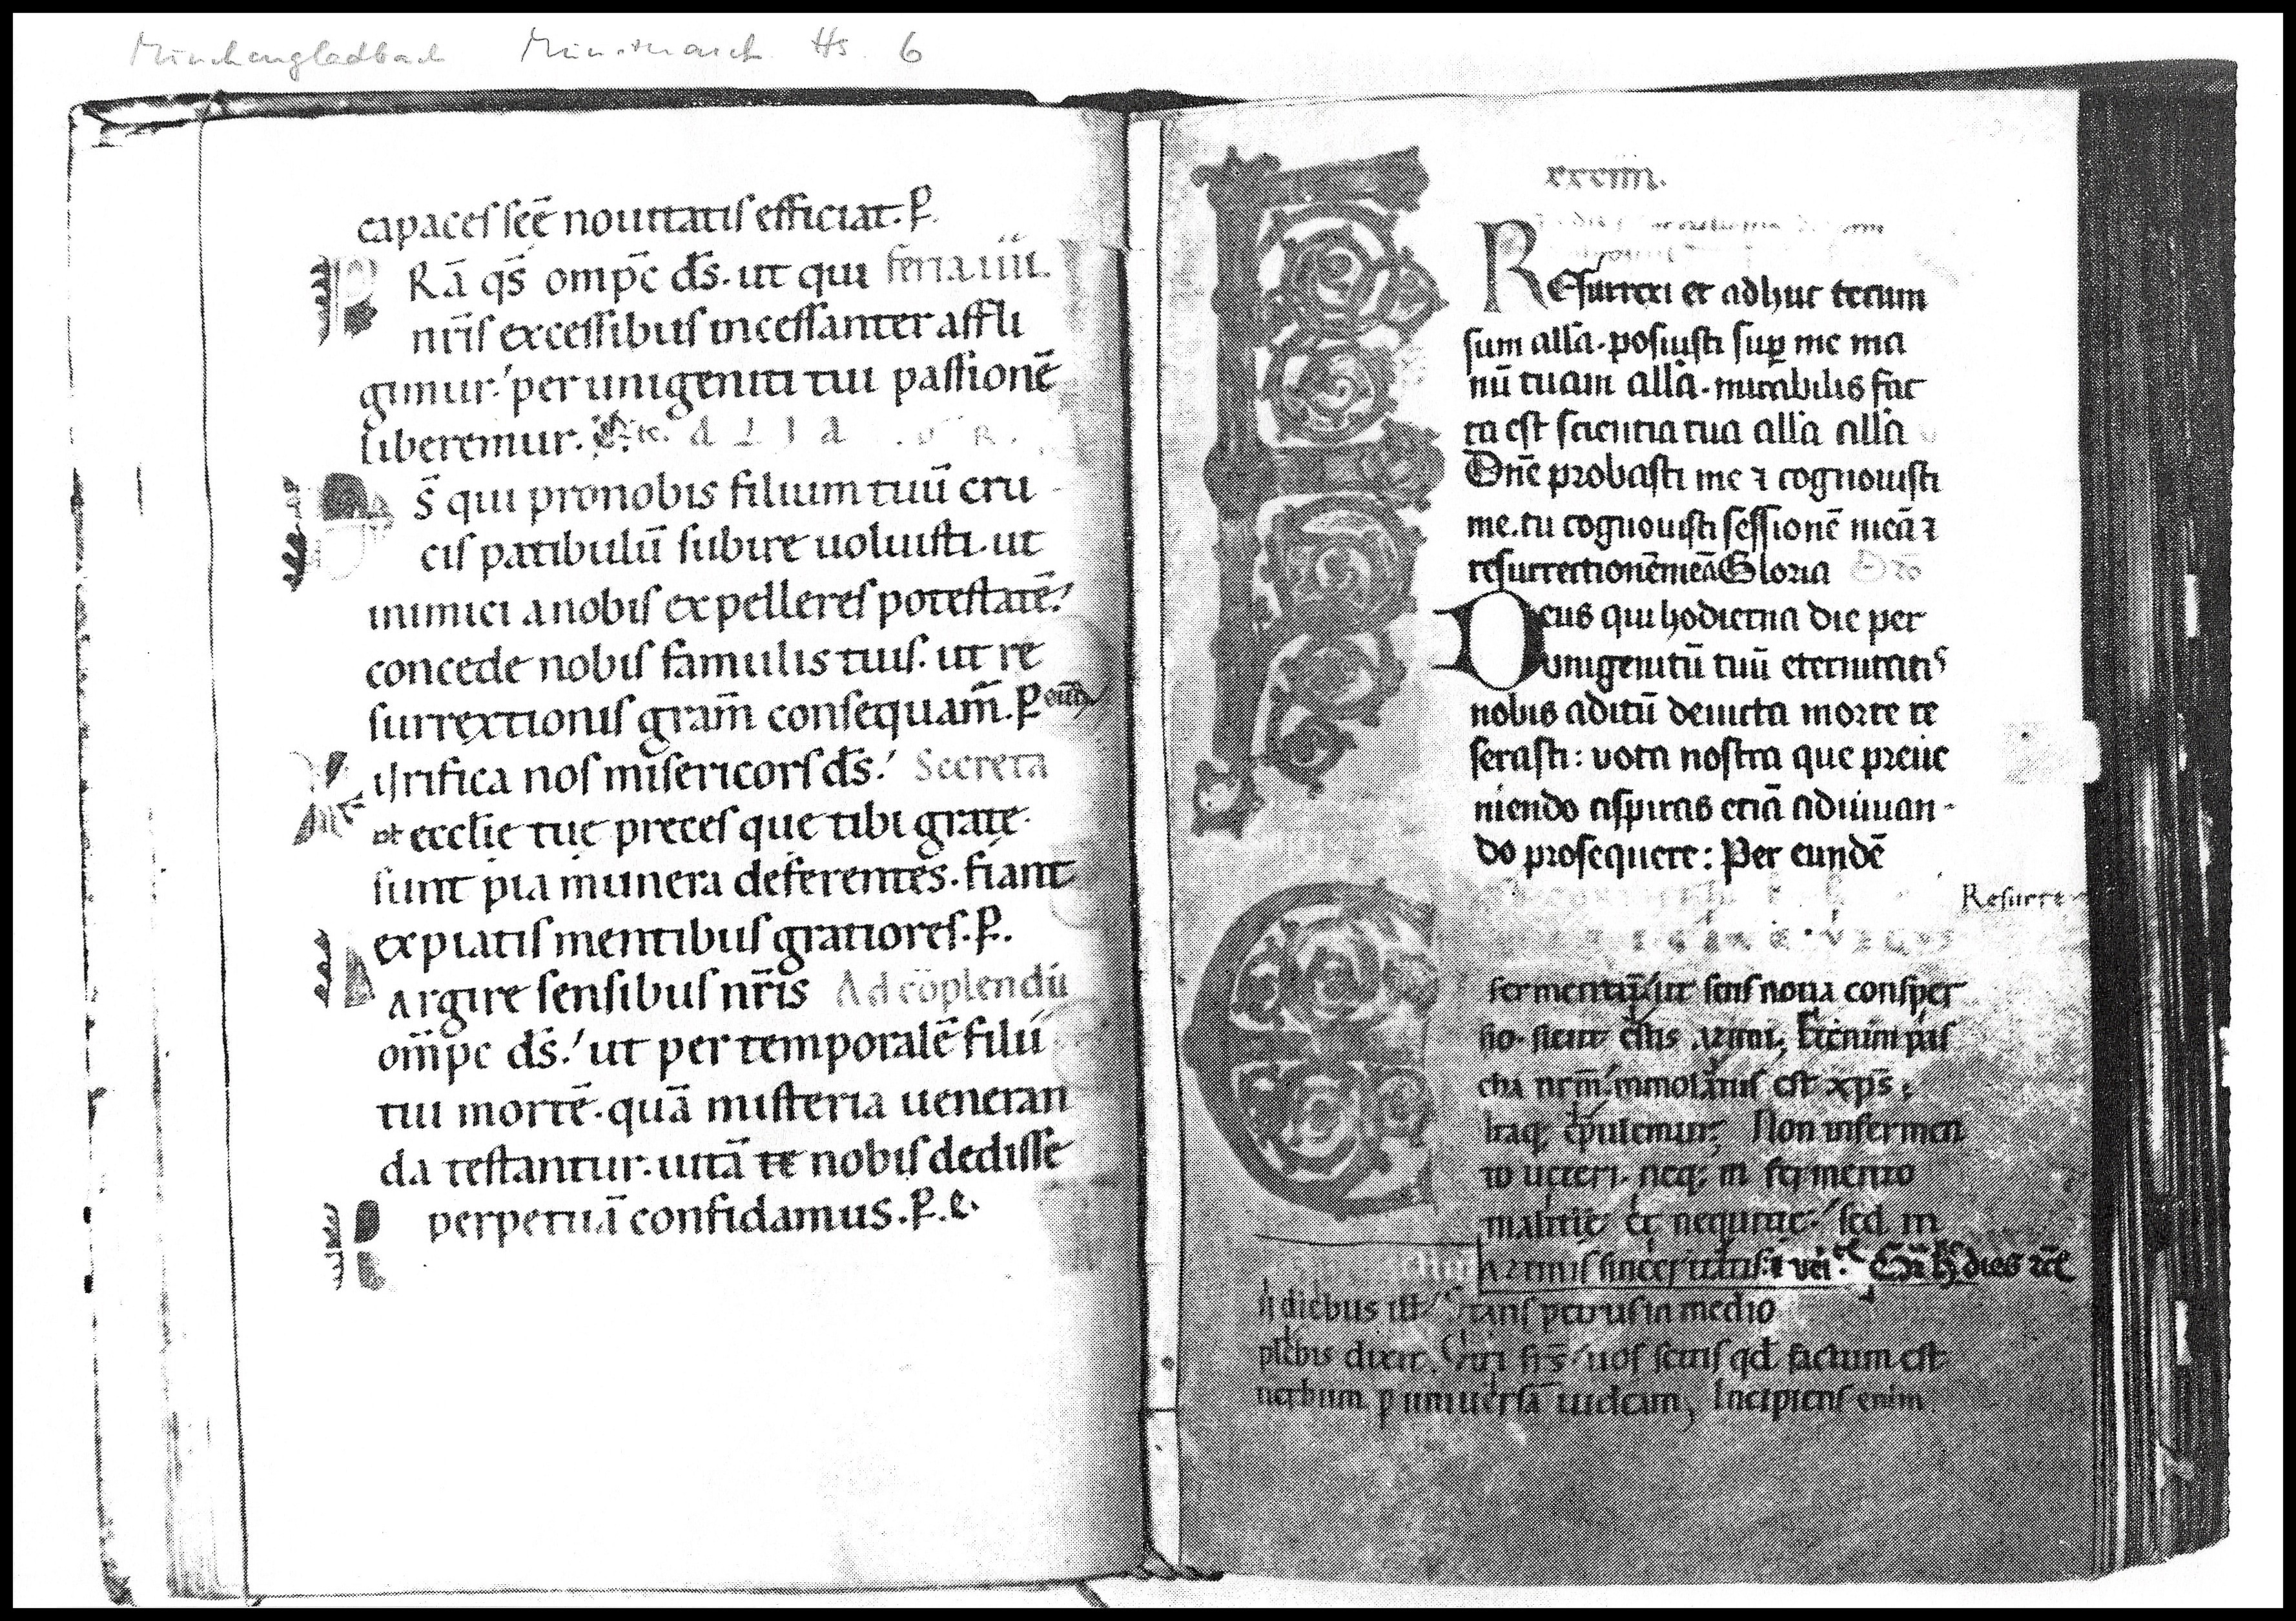 Mönchengladbach Münsterarch. Hs. 6
capaces scē nouitatis efficiat. P̄.
P Rā qs̄ omp̄c ds̄. ut qui feria iiii.
nr̄is excessibus incessanter affli
gimur: per unigeniti tui passionē
liberemur.
s̄ qui pro nobis filium tuū cru
cis patibulū subire uoluisti. ut
inimici a nobis expelleres potestatē:
concede nobis famulis tuis. ut re
surrectionis grām consequam̄. P eūd
urifica nos misericors ds̄: Secreta
ut eccl̄ie tue preces que tibi grate
sunt pia munera deferentes. fiant
expiatis mentibus gratiores. P̄.
Largire sensibus nr̄is Ad cōplendū
om̄pc ds̄: ut per temporalē filii
tui mortē. quā misteria ueneran
da testantur. uitā te nobis dedisse
perpetuā confidamus. P̄. e.
xcciiii.
Resurrexi et adhuc tecum
sum alla. posuisti sup me ma
nū tuam alla. mirabilis fac
ta est scientia tua alla alla
Dn̄e probasti me ⁊ cognouisti
me. tu cognouisti sessionē meā ⁊
resurrectionē meā Gloria Or̄o
Deus qui hodierna die per
unigenitū tuū eternitatis
nobis aditū deuicta morte re
serasti: vota nostra que preue
niendo aspiras etiā adiuuan-
do prosequere: Per eundē
Resurre
fermentū: ut sitis noua consper
sio. sicut estis azimi. Etenim pas
cha nr̄m immolatus est xp̄s.
Itaq; epulemur. Non in fermen
to ueteri. neq; in fermento
malitie et nequitie: sed in
azimis sinceritatis ⁊ vei. Gr̄ Hec dies ⁊c̄
n diebus ill̄ Stans petrus in medio
plebis dixit. Uiri fr̄s uos scitis qd̄ factum est
uerbum p uniuersā iudeam, Incipiens enim